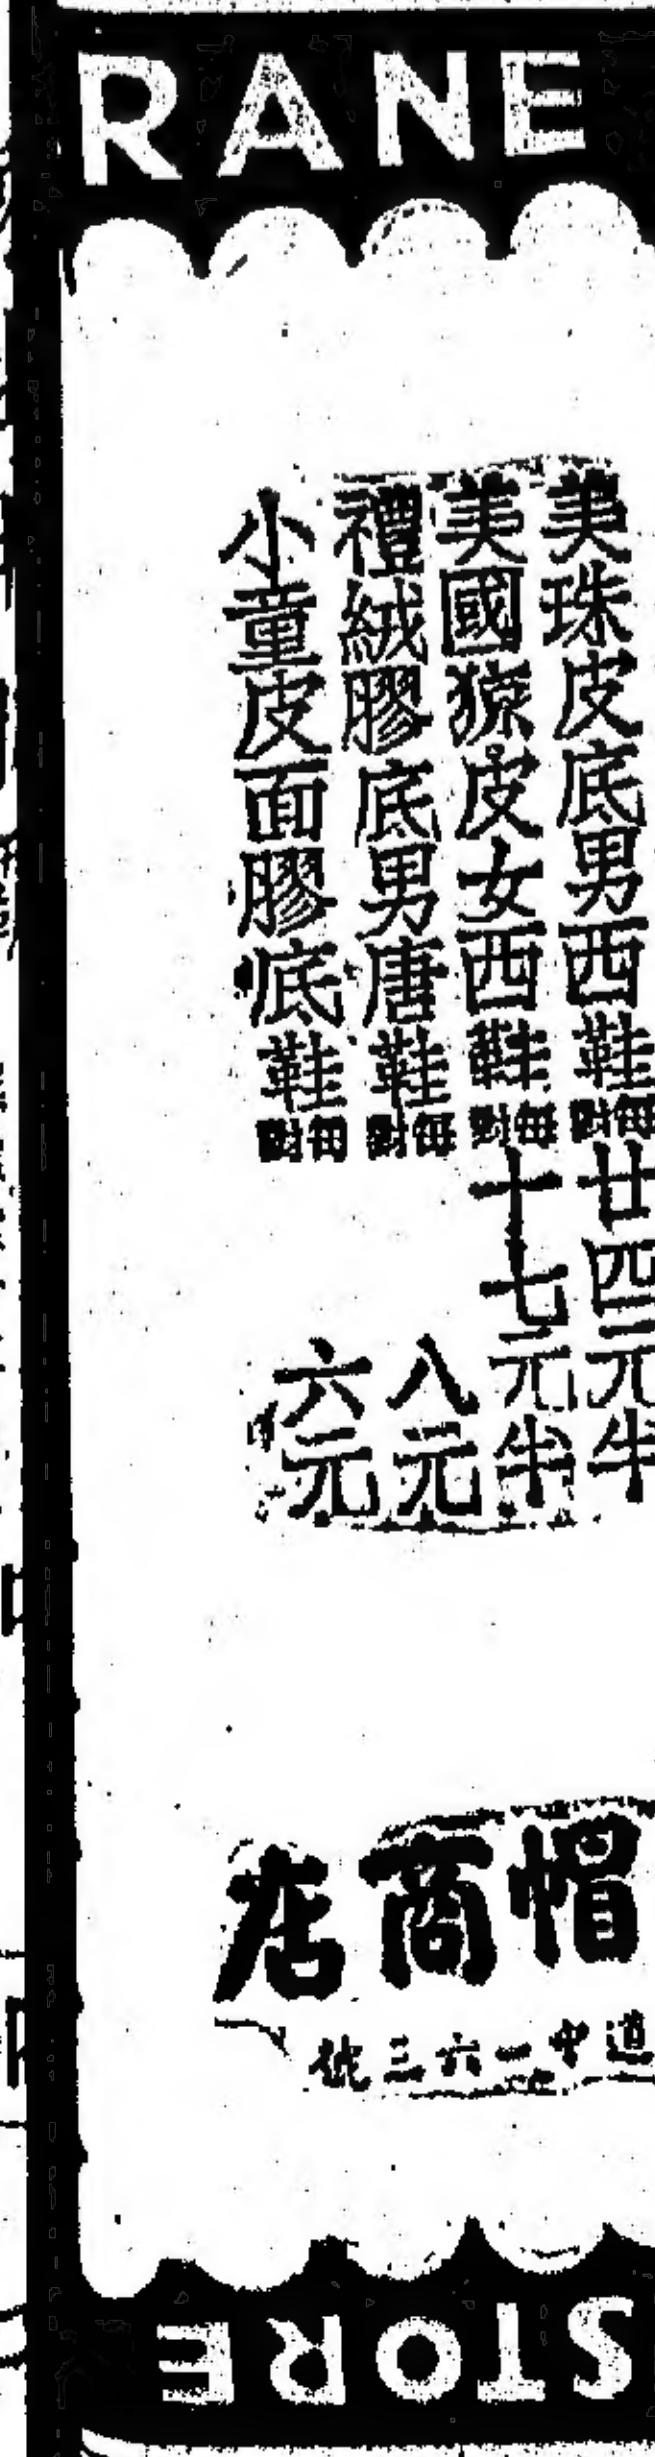 RANE
美珠皮底男西鞋每對廿四元半
美國猄皮女西鞋每對十七元半
禮絨膠底男唐鞋每對八元
小童皮面膠底鞋每對六元
帽商店
道中一六三號
STORE